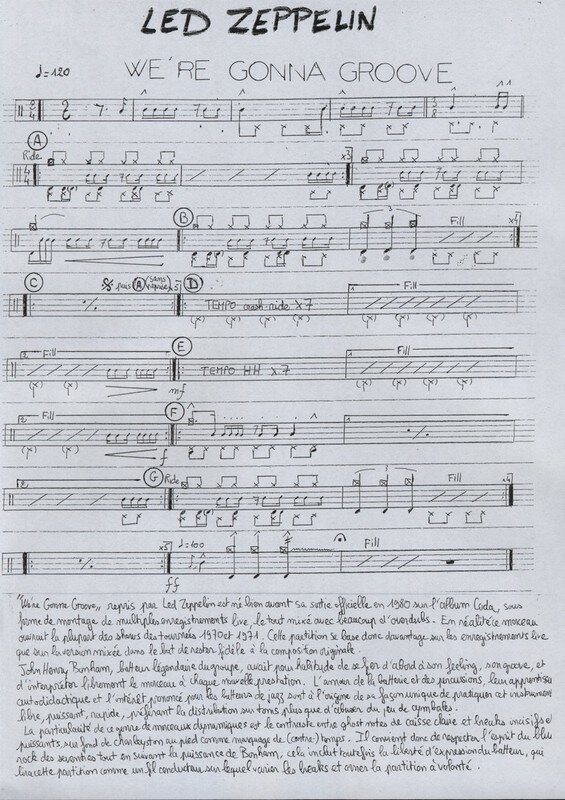 LED ZEPPELIN
♩=120
WE'RE GONNA GROOVE
A
Ride
x3
B
3
Fill
x4
C
puis A (sans reprise)
x3
D
TEMPO crash-ride x7
1.
Fill
2.
Fill
mf
E
TEMPO HH x7
1.
Fill
2.
Fill
f
F
1.
2.
G
Ride
3
Fill
x4
x5
♩=100
ff
Fill
"We're Gonna Groove", repris par Led Zeppelin est né bien avant sa sortie officielle en 1980 sur l'album Coda, sous
forme de montage de multiples enregistrements live, le tout mixé avec beaucoup d'overdubs. En réalité ce morceau
ouvrait la plupart des shows des tournées 1970 et 1971. Cette partition se base donc davantage sur les enregistrements live
que sur la version mixée dans le but de rester fidèle à la composition originale.
John Henry Bonham, batteur légendaire du groupe, avait pour habitude de se fier d'abord à son feeling, son groove, et
d'interpréter librement le morceau à chaque nouvelle prestation. L'amour de la batterie et des percussions, leur
autodidactique et l'intérêt prononcé pour les batteurs de jazz sont à l'origine de sa façon unique de pratiquer cet instrument
libre, puissant, rapide, préférant la distribution sur toms plus que d'abuser du jeu de cymbales.
La particularité de ce genre de morceaux dynamiques est le contraste entre ghost notes de caisse claire et breaks incisifs et
puissants sur fond de charleyston au pied comme marquage de (contre-) temps. Il convient donc de respecter l'esprit du blu
rock des seventies tout en suivant la puissance de Bonham, cela inclut toutefois la liberté d'expression du batteur, qui
lira cette partition comme un fil conducteur sur lequel varier les breaks et orner la partition à volonté.